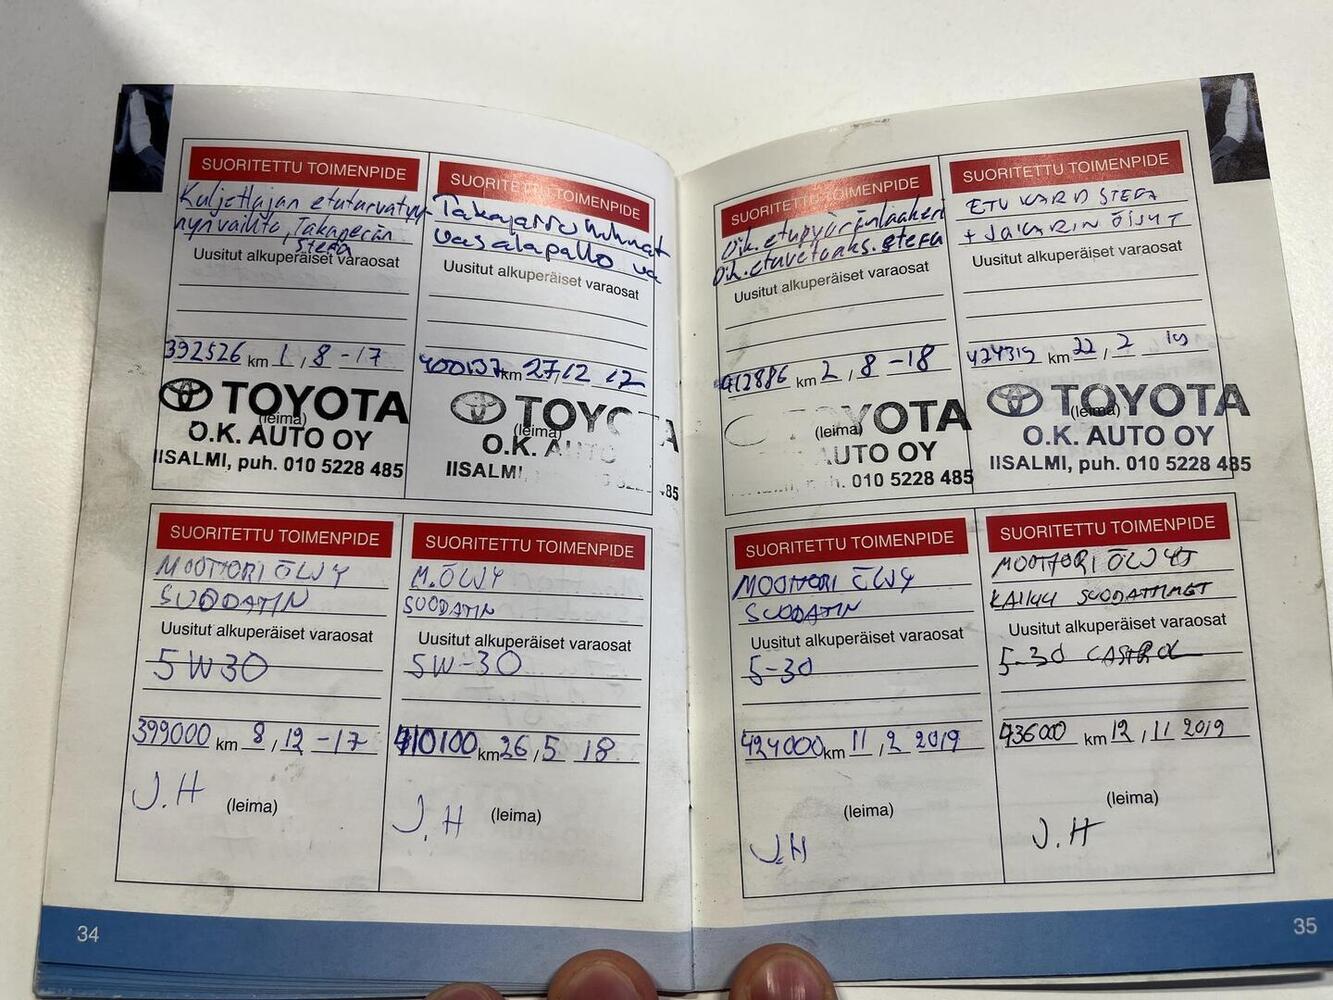 SUORITETTU TOIMENPIDE
Kuljettajan etuturvatyy
nynvaihto, Takaperän
STEFA
Uusitut alkuperäiset varaosat
392526 km 1, 8 -17
TOYOTA
(leima)
O.K. AUTO OY
IISALMI, puh. 010 5228 485
SUORITETTU TOIMENPIDE
Takajarruhihnat
vasalapallo va
Uusitut alkuperäiset varaosat
400137 km 27, 12 17
TOYOTA
(leima)
O.K. AUTO
IISALMI, 485
SUORITETTU TOIMENPIDE
Oik. etupyöränlaakeri
Oik. etuvetoaks. STEFA
Uusitut alkuperäiset varaosat
412886 km 2, 8 -18
YOTA
(leima)
AUTO OY
h. 010 5228 485
SUORITETTU TOIMENPIDE
ETU KARD STEFA
+ JAKARIN ÖLJYT
Uusitut alkuperäiset varaosat
424319 km 22, 2 19
TOYOTA
(leima)
O.K. AUTO OY
IISALMI, puh. 010 5228 485
SUORITETTU TOIMENPIDE
MOOTTORI ÖLJY
SUODATIN
Uusitut alkuperäiset varaosat
5W30
399000 km 8, 12 -17
J.H (leima)
SUORITETTU TOIMENPIDE
M.ÖLJY
SUODATIN
Uusitut alkuperäiset varaosat
5W-30
410100 km 26, 5 18
J.H (leima)
SUORITETTU TOIMENPIDE
MOOTTORI ÖLJY
SUODATIN
Uusitut alkuperäiset varaosat
5-30
424000 km 11, 2 2019
(leima)
J.H
SUORITETTU TOIMENPIDE
MOOTTORI ÖLJYT
KAIKKI SUODATTIMET
Uusitut alkuperäiset varaosat
5-30 CASTROL
436000 km 12, 11 2019
(leima)
J.H
34
35